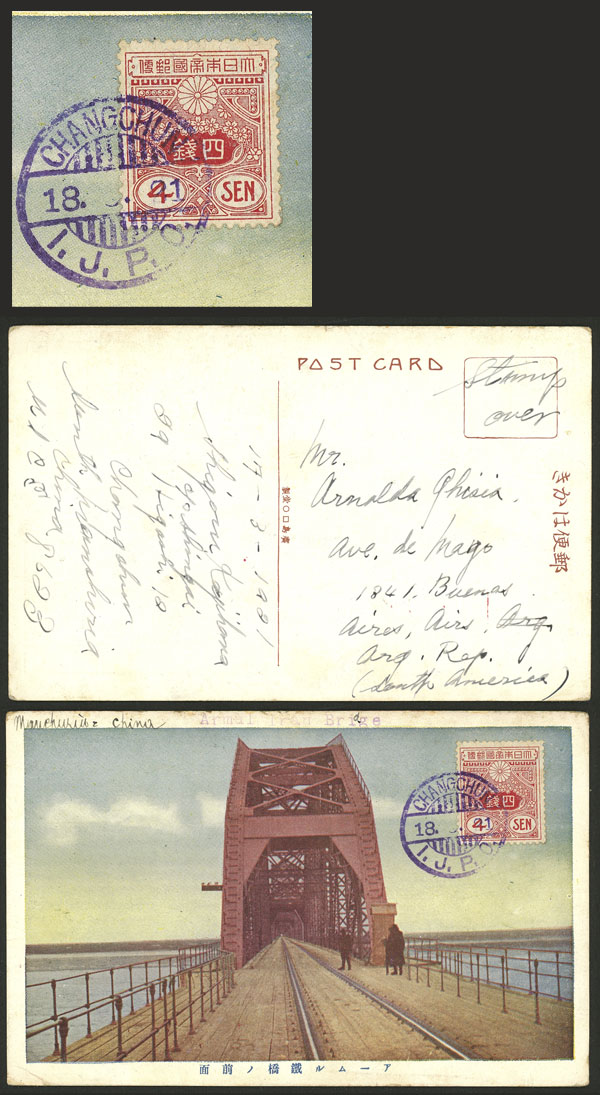 便郵國帝本日大
CHANGCHUN
錢四
18. 3. 21
4 SEN
I.J.P.O.
POST CARD
Stamp
over
きかは便郵
Mr.
Arnolda Ghisia.
Ave. de Mayo
1341. Buenas
Aires, Airs, Arg.
Arg. Rep.
(South America)
17-3-1921
29 Higashi 12
Changchun
South Manshuria
China
Manchuria China
Armul Iron Brige
便郵國帝本日大
CHANGCHUN
錢四
18. 3. 21
4 SEN
I.J.P.O.
面前ノ橋鐵ルムーア